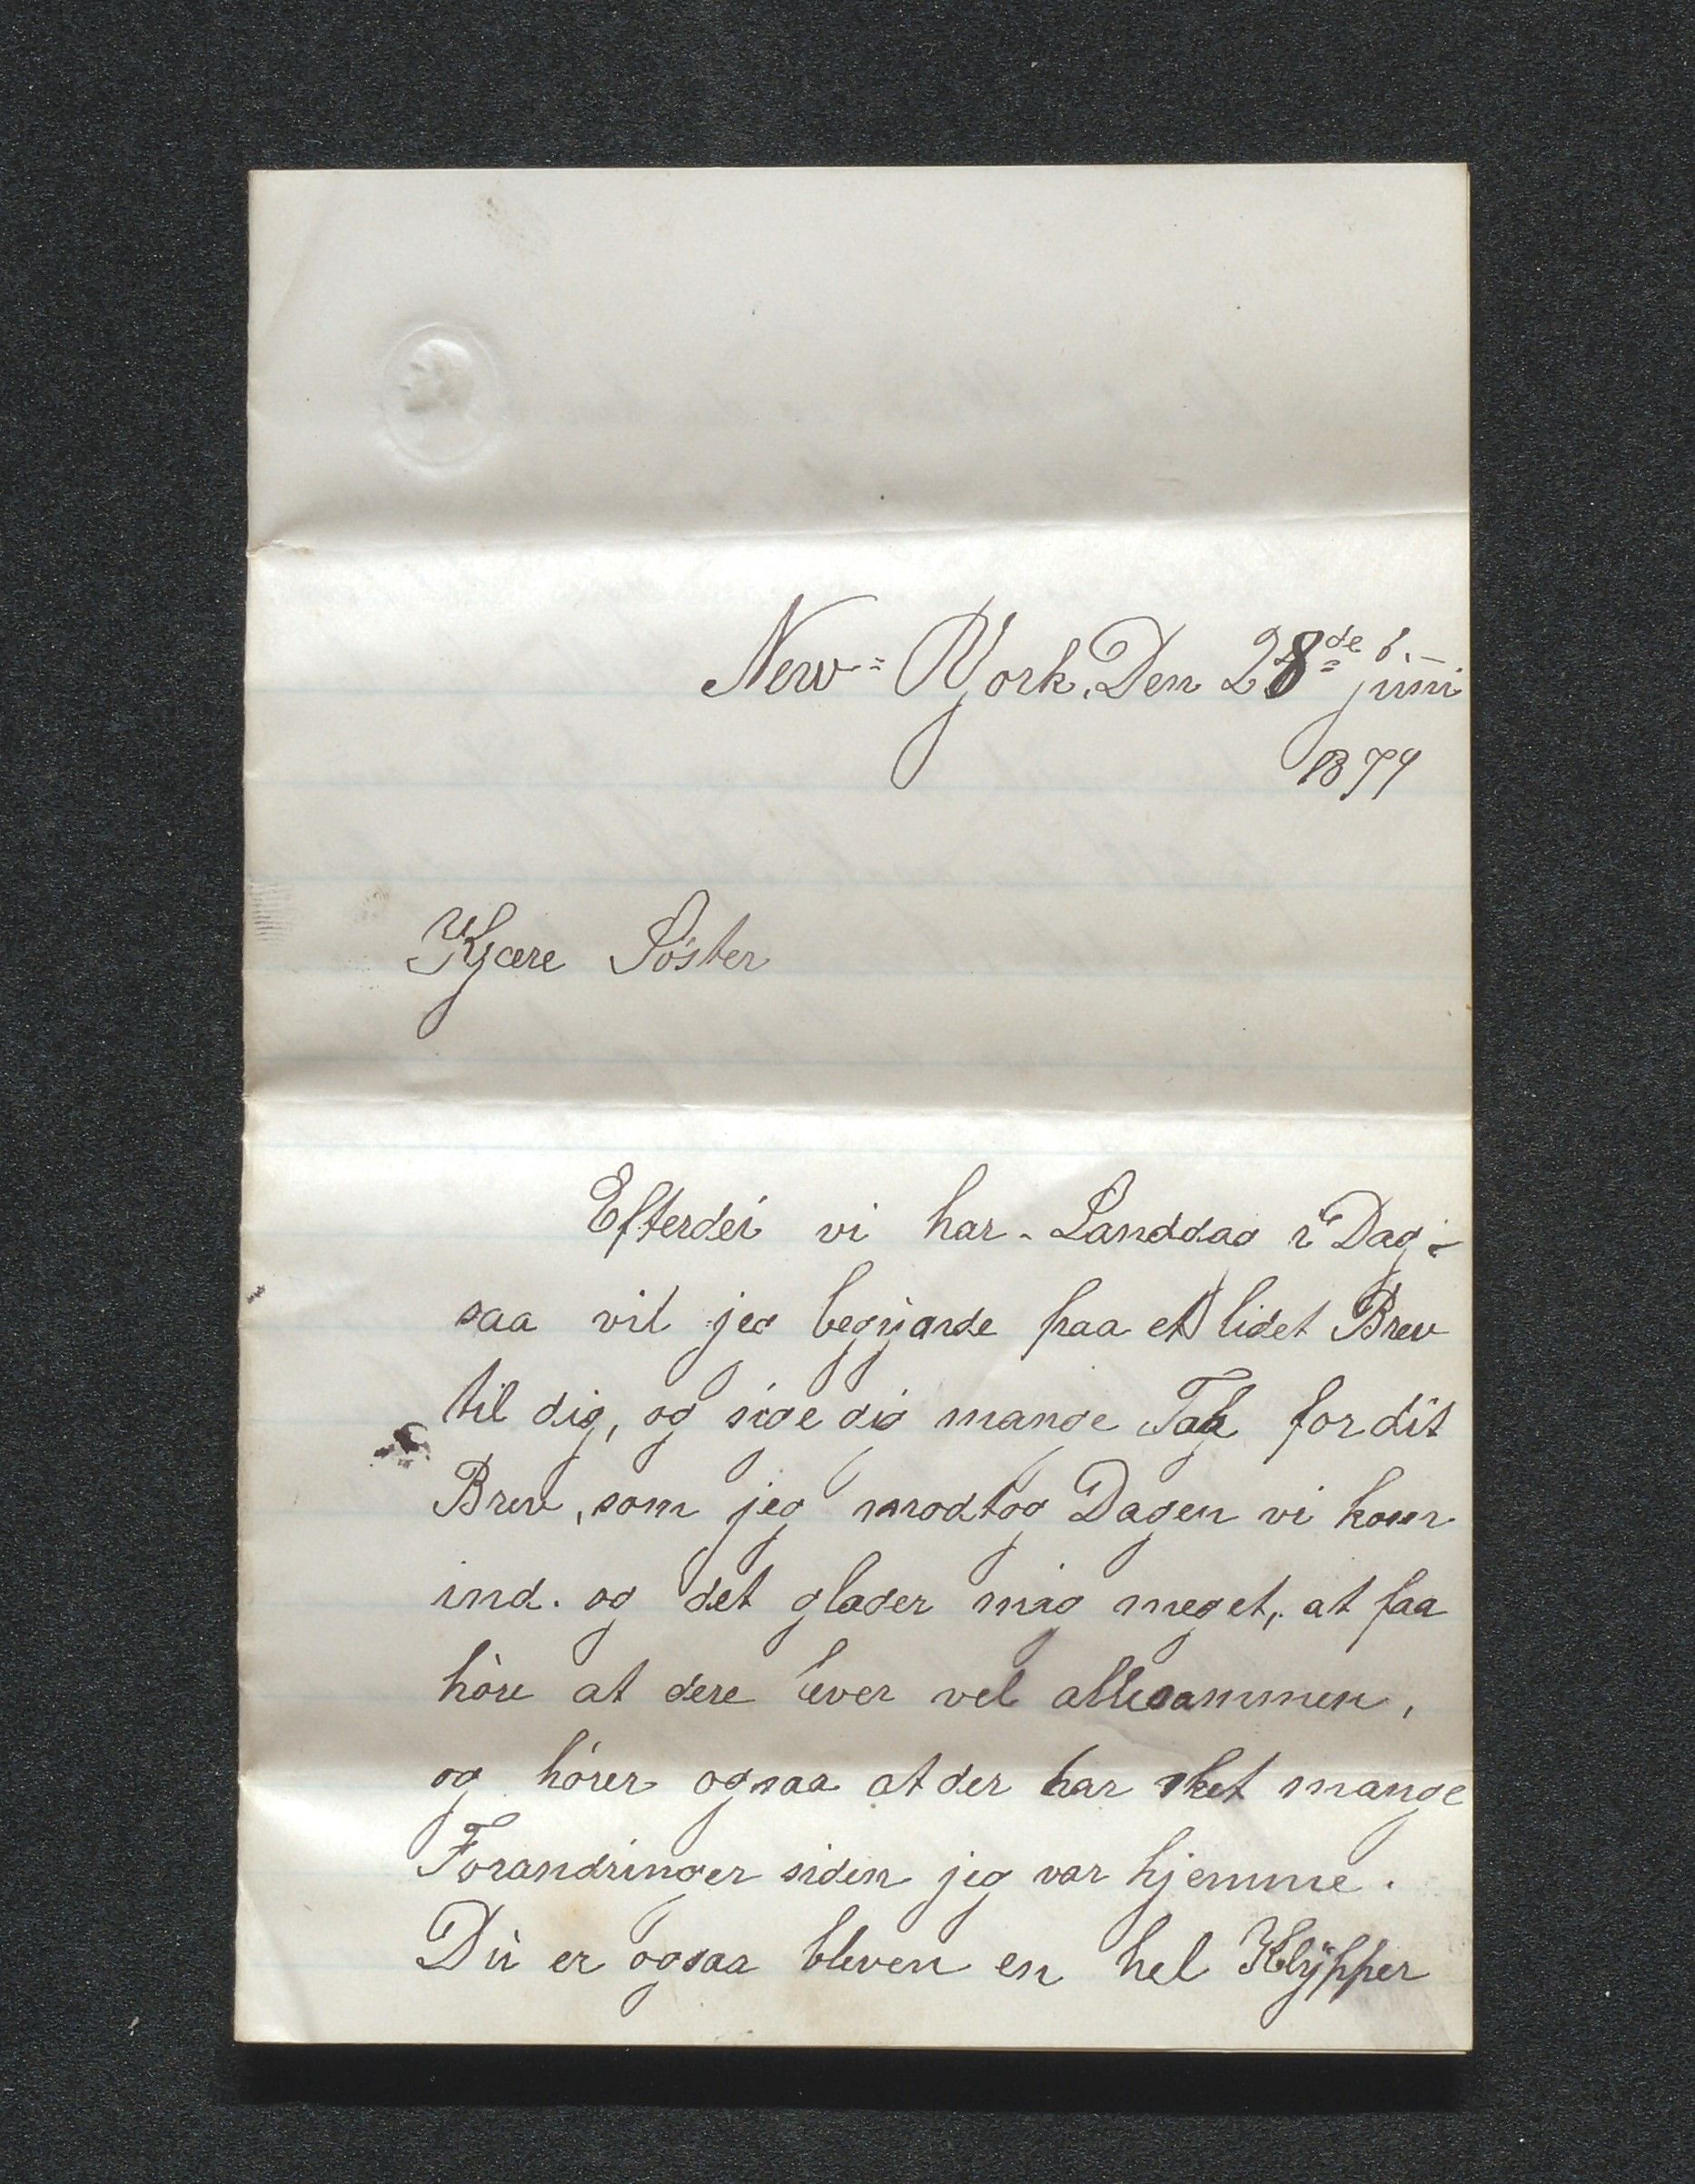 New=York, Den 28de juni
1879
Kjære Söster
Efterdèi vi har. Landdag i Dag.
saa vil jeg begÿnde paa et lidet Brev
til dig, og sige dig mange Tak for dit
Brev, som jeg modtog Dagen vi kom
ind. og det glæder mig meget, at faa
höre at dere lever vel allesammen,
og hörer ogsaa at der har sket mange
Forandringer siden jeg var hjemme.
Dù er ogsaa bleven en hel Klÿpper